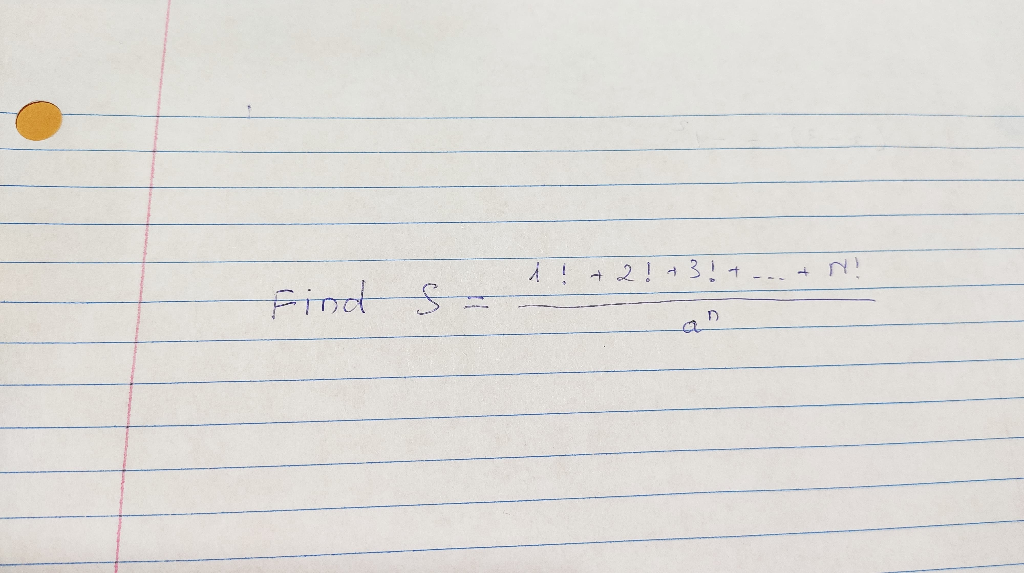 Find S = \frac{1! + 2! + 3! + ... + N!}{a^n}